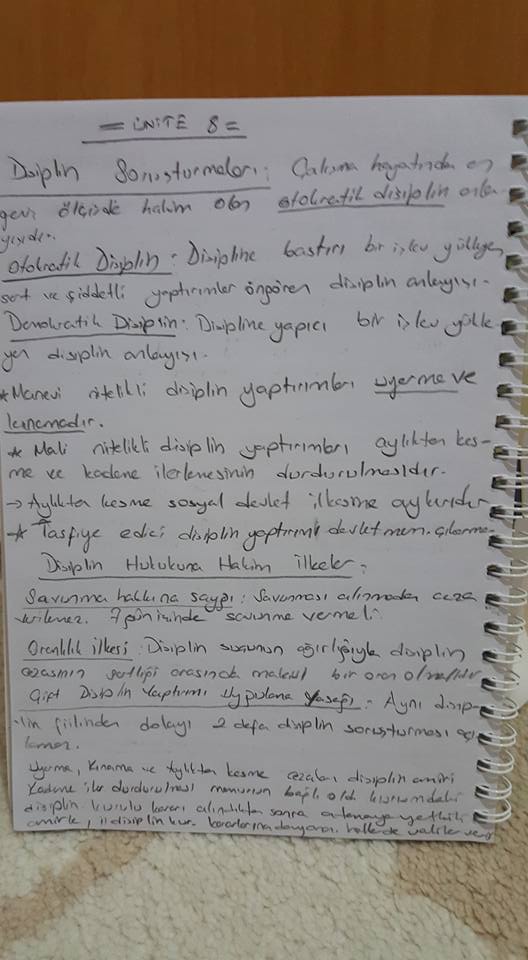 = ÜNİTE 8 =
Disiplin Soruşturmaları: Çalışma hayatında en
geniş ölçüde hakim olan otokratik disiplin anla-
yışıdır.
Otokratik Disiplin: Disipline bastırıcı bir işlev yükleyen,
sert ve şiddetli yaptırımlar öngören disiplin anlayışı.
Demokratik Disiplin: Disipline yapıcı bir işlev yükle-
yen disiplin anlayışı.
* Manevi nitelikli disiplin yaptırımları uyarma ve
kınamadır.
* Mali nitelikli disiplin yaptırımları aylıktan kes-
me ve kademe ilerlemesinin durdurulmasıdır.
→ Aylıktan kesme sosyal devlet ilkesine aykırıdır
* Tasfiye edici disiplin yaptırımı devlet mem. çıkarma.
Disiplin Hukukuna Hakim İlkeler:
Savunma hakkına saygı: Savunması alınmadan ceza
verilemez. 7 gün içinde savunma vermeli.
Oranlılık ilkesi: Disiplin suçunun ağırlığıyla disiplin
cezasının sertliği arasında makul bir oran olmalıdır
Çift Disiplin Yaptırımı Uygulama Yasağı: Aynı disip-
lin fiilinden dolayı 2 defa disiplin soruşturması açı-
lamaz.
Uyarma, Kınama ve Aylıktan kesme cezaları disiplin amiri
Kademe iler durdurulması memurun bağlı old. kurumdaki
disiplin kurulu kararı alındıktan sonra atamaya yetkili
amirler, il disiplin kur. kararlarına dayanan hallerde valiler